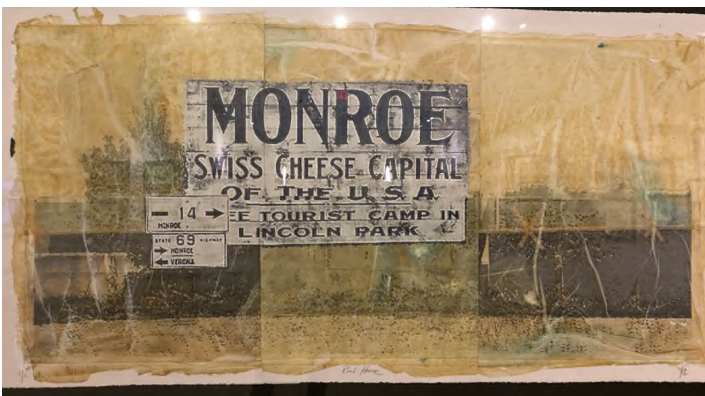 MONROE
SWISS CHEESE CAPITAL
OF THE U.S.A.
EE TOURIST CAMP IN
LINCOLN PARK
14
MONROE
STATE 69 HIGHWAY
MONROE
VERONA